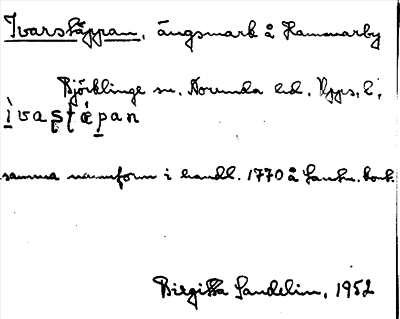 Ivarstäppan, ängsmark å Hammarby
Björklinge sn. Norunda hd. Upps. l.
ìvaʂʈɛ́pan
samma namnform i handl. 1770 å Lantm. kont.
Birgitta Sundelin, 1952